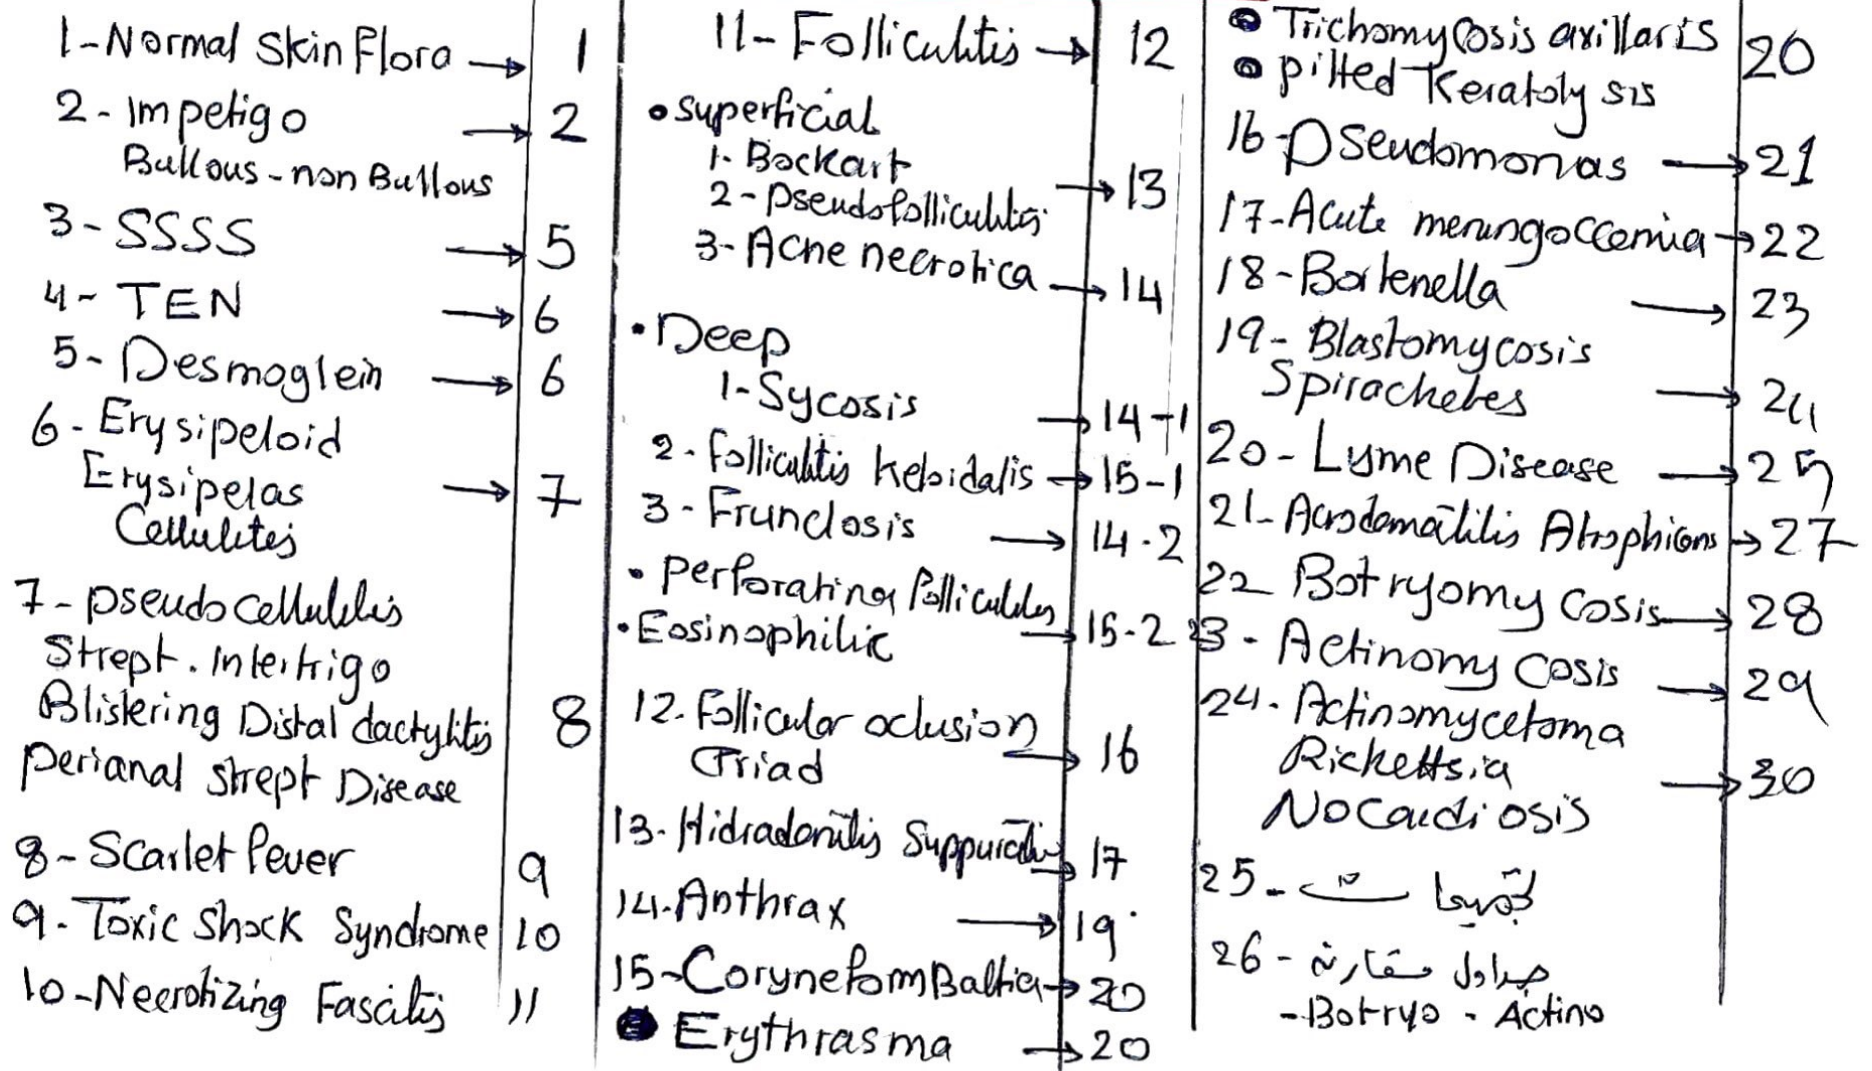 1-Normal Skin Flora → 1
2- Impetigo → 2
Bullous - non Bullous
3- SSSS → 5
4- TEN → 6
5- Desmoglein → 6
6- Erysipeloid
Erysipelas → 7
Cellulites
7- pseudocellulitis
Strept. Intertrigo
Blistering Distal dactylitis 8
perianal strept Disease
8- Scarlet fever 9
9. Toxic Shock Syndrome 10
10-Necrotizing Fascitis 11
11- Folliculitis → 12
• superficial
1. Bockart
2- pseudofolliculitis → 13
3- Acne necrotica → 14
• Deep
1-Sycosis → 14-1
2. folliculitis keloidalis → 15-1
3- Frunclosis → 14.2
• perforating folliculites
• Eosinophilic → 15-2
12. Follicular oclusion
Triad → 16
13. Hidradenitis Suppurativ → 17
14. Anthrax → 19
15-Coryneform Bactria → 20
• Erythrasma → 20
• Trichomycosis axillaris 20
• pitted Keratolysis
16- Pseudomonas → 21
17-Acute meningoccemia → 22
18-Bartenella → 23
19- Blastomycosis
Spirachetes → 24
20- Lyme Disease → 25
21- Acrodematitis Atrophicans → 27
22 Botryomycosis → 28
23- Actinomycosis → 29
24. Actinomycetoma
Rickettsia → 30
Nocardiosis
25-
26- جداول مقارنة
-Botryo - Actino